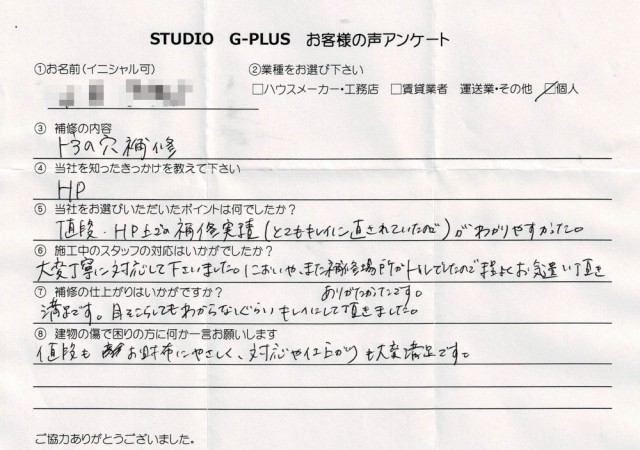 STUDIO G-PLUS お客様の声アンケート
①お名前(イニシャル可) ②業種をお選び下さい
□ハウスメーカー・工務店 □賃貸業者 運送業・その他 □個人
③ 補修の内容
トビラの穴補修
④ 当社を知ったきっかけを教えて下さい
HP
⑤ 当社をお選びいただいたポイントは何でしたか?
値段・HP上での補修実績(とてもキレイに直されていたので)がわかりやすかった。
⑥ 施工中のスタッフの対応はいかがでしたか?
大変丁寧に対応して下さいました。(においや、また補修場所がトイレでしたので 程よくお気遣い頂き
⑦ 補修の仕上がりはいかがですか? ありがたかったです。
満足です。目をこらしてもわからないぐらいキレイにして頂きました。
⑧ 建物の傷で困りの方に何か一言お願いします
値段も お財布にやさしく、対応や仕上がりも大変満足です。
ご協力ありがとうございました。